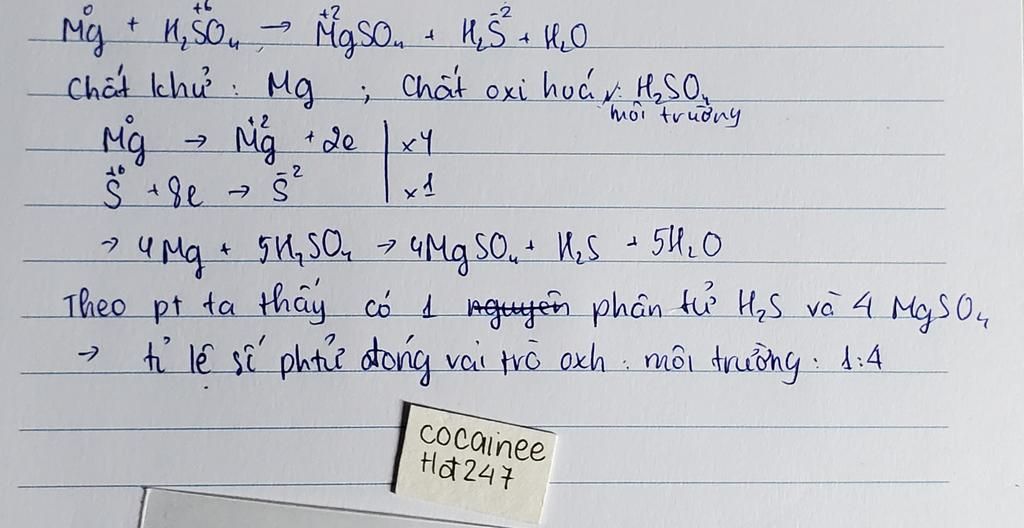 Mg⁰ + H₂S⁺⁶O₄ → Mg⁺²SO₄ + H₂S⁻² + H₂O
Chất khử : Mg ; Chất oxi hoá, môi trường : H₂SO₄
Mg⁰ → Mg⁺² + 2e | x4
S⁺⁶ + 8e → S⁻² | x1
→ 4Mg + 5H₂SO₄ → 4MgSO₄ + H₂S + 5H₂O
Theo pt ta thấy có 1 nguyên phân tử H₂S và 4 MgSO₄
→ tỉ lệ số phtử đóng vai trò oxh : môi trường : 1:4
cocainee
Hot247